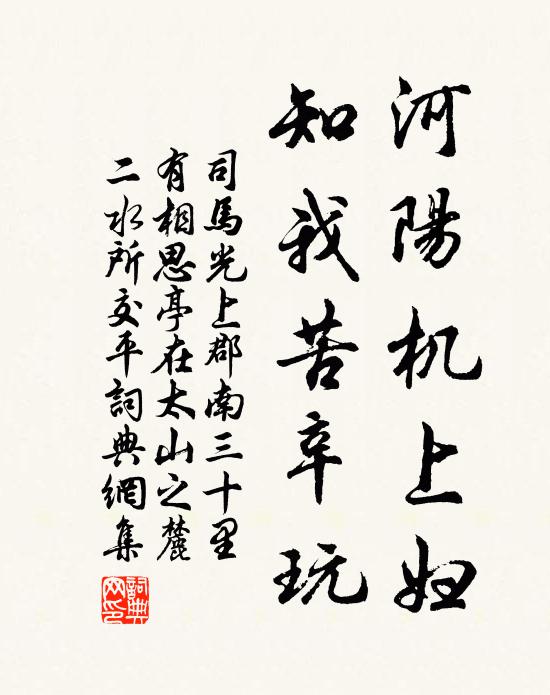 河陽机上妇
知我苦辛玩
司馬光上郡南三十里
有相思亭在太山之麓
二水所交平詞典網集
詞典网印